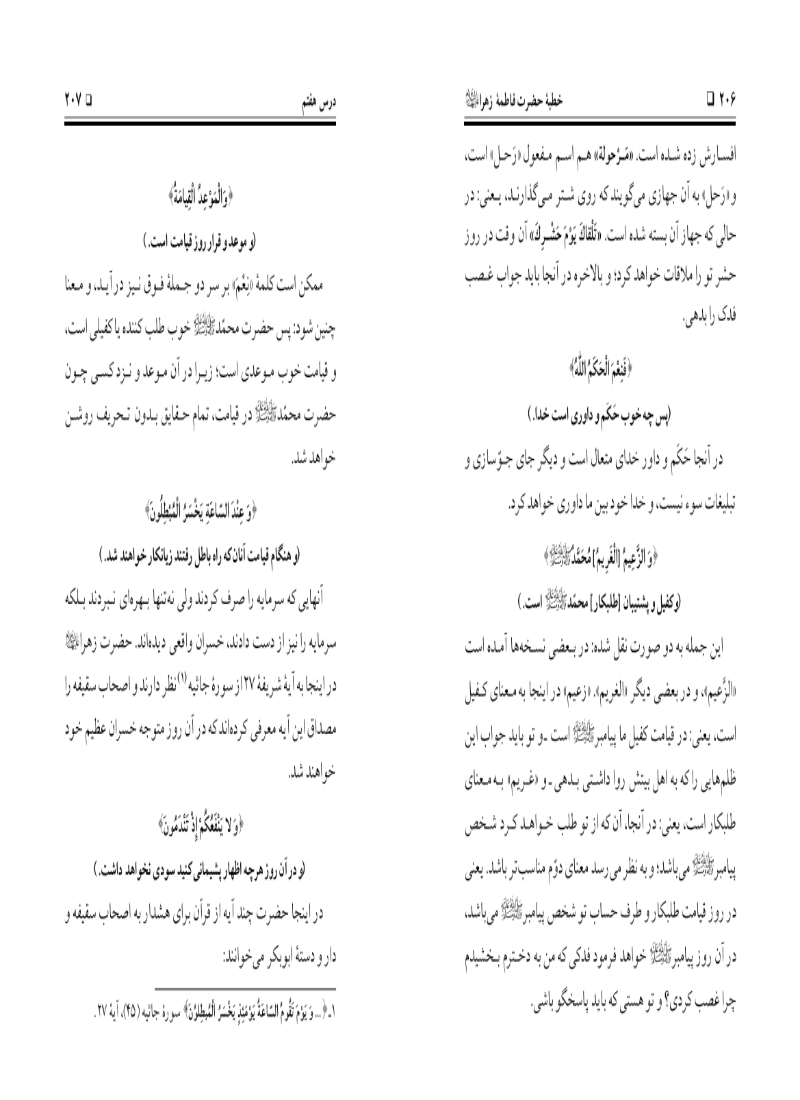 ۲۰۶ ❑ خطبهٔ حضرت فاطمهٔ زهرا
افسارش زده شده است. «مَرْحولة» هم اسم مفعول «رَحل» است،
و «رَحل» به آن جهازی می‌گویند که روی شتر می‌گذارند، یعنی: در
حالی که جهاز آن بسته شده است. «تَلْقاكَ يَوْمَ حَشْرِكَ» آن وقت در روز
حشر تو را ملاقات خواهد کرد؛ و بالاخره در آنجا باید جواب غصب
فدک را بدهی.
﴿فَنِعْمَ الْحَكَمُ اللهُ﴾
(پس چه خوب حَكَم و داوری است خدا.)
در آنجا حَكَم و داور خدای متعال است و دیگر جای جوّسازی و
تبلیغات سوء نیست، و خدا خود بین ما داوری خواهد کرد.
﴿وَ الزَّعِيمُ [الْغَرِيمُ] مُحَمَّدٌ ﷺ﴾
(و کفیل و پشتیبان [طلبکار] محمّد ﷺ است.)
این جمله به دو صورت نقل شده: در بعضی نسخه‌ها آمده است
«الزَّعیم»، و در بعضی دیگر «الغریم». «زعیم» در اینجا به معنای کفیل
است، یعنی: در قیامت کفیل ما پیامبر ﷺ است ـ و تو باید جواب این
ظلم‌هایی را که به اهل بیتش روا داشتی بدهی ـ و «غریم» به معنای
طلبکار است، یعنی: در آنجا، آن که از تو طلب خواهد کرد شخص
پیامبر ﷺ می‌باشد؛ و به نظر می‌رسد معنای دوّم مناسب‌تر باشد. یعنی
در روز قیامت طلبکار و طرف حساب تو شخص پیامبر ﷺ می‌باشد،
در آن روز پیامبر ﷺ خواهد فرمود فدکی که من به دخترم بخشیدم
چرا غصب کردی؟ و تو هستی که باید پاسخگو باشی.
درس هفتم ❑ ۲۰۷
﴿وَالْمَوْعِدُ الْقِيامَةُ﴾
(و موعد و قرار روز قیامت است.)
ممکن است کلمهٔ «نِعْمَ» بر سر دو جملهٔ فوق نیز در آید، و معنا
چنین شود: پس حضرت محمّد ﷺ خوب طلب کننده یا کفیلی است،
و قیامت خوب موعدی است؛ زیرا در آن موعد و نزد کسی چون
حضرت محمّد ﷺ در قیامت، تمام حقایق بدون تحریف روشن
خواهد شد.
﴿وَ عِنْدَ السّاعَةِ يَخْسَرُ الْمُبْطِلُونَ﴾
(و هنگام قیامت آنان که راه باطل رفتند زیانکار خواهند شد.)
آنهایی که سرمایه را صرف کردند ولی نه‌تنها بهره‌ای نبردند بلکه
سرمایه را نیز از دست دادند، خسران واقعی دیده‌اند. حضرت زهرا
در اینجا به آیهٔ شریفهٔ ۲۷ از سورهٔ جاثیه(۱) نظر دارند و اصحاب سقیفه را
مصداق این آیه معرفی کرده‌اند که در آن روز متوجه خسران عظیم خود
خواهند شد.
﴿وَ لا يَنْفَعُكُمْ إِذْ تَنْدَمُونَ﴾
(و در آن روز هرچه اظهار پشیمانی کنید سودی نخواهد داشت.)
در اینجا حضرت چند آیه از قرآن برای هشدار به اصحاب سقیفه و
دار و دستهٔ ابوبکر می‌خوانند:
۱ـ ﴿... وَ يَوْمَ تَقُومُ السّاعَةُ يَوْمَئِذٍ يَخْسَرُ الْمُبطِلُونَ﴾ سورهٔ جاثیه (۴۵)، آیهٔ ۲۷.